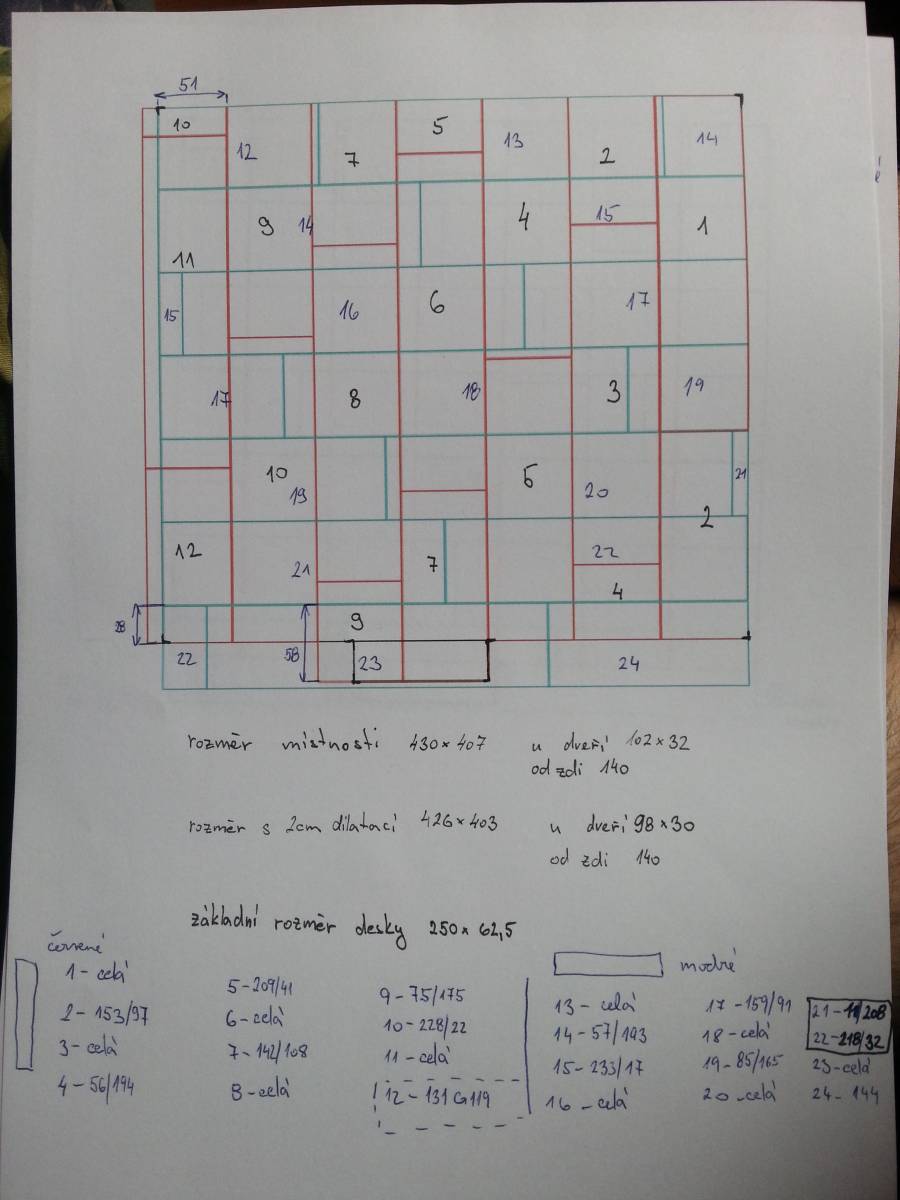 51
10 12 7 5 13 2 14
11 9 14 4 15 1
15 16 6 17
17 8 18 3 19
10 19 6 20 21
12 21 7 22 2
4
28 9
22 58 23 24
rozměr místnosti 430×407 u dveří 102×32
od zdi 140
rozměr s 2cm dilatací 426×403 u dveří 98×30
od zdi 140
základní rozměr desky 250×62,5
červené
1 - celá
2 - 153/97
3 - celá
4 - 56/194
5 - 209/41
6 - celá
7 - 142/108
8 - celá
9 - 75/175
10 - 228/22
11 - celá
12 - 131 G 119
modré
13 - celá
14 - 57/193
15 - 233/17
16 - celá
17 - 159/91
18 - celá
19 - 85/165
20 - celá
21 - 11/208
22 - 218/32
23 - celá
24 - 144